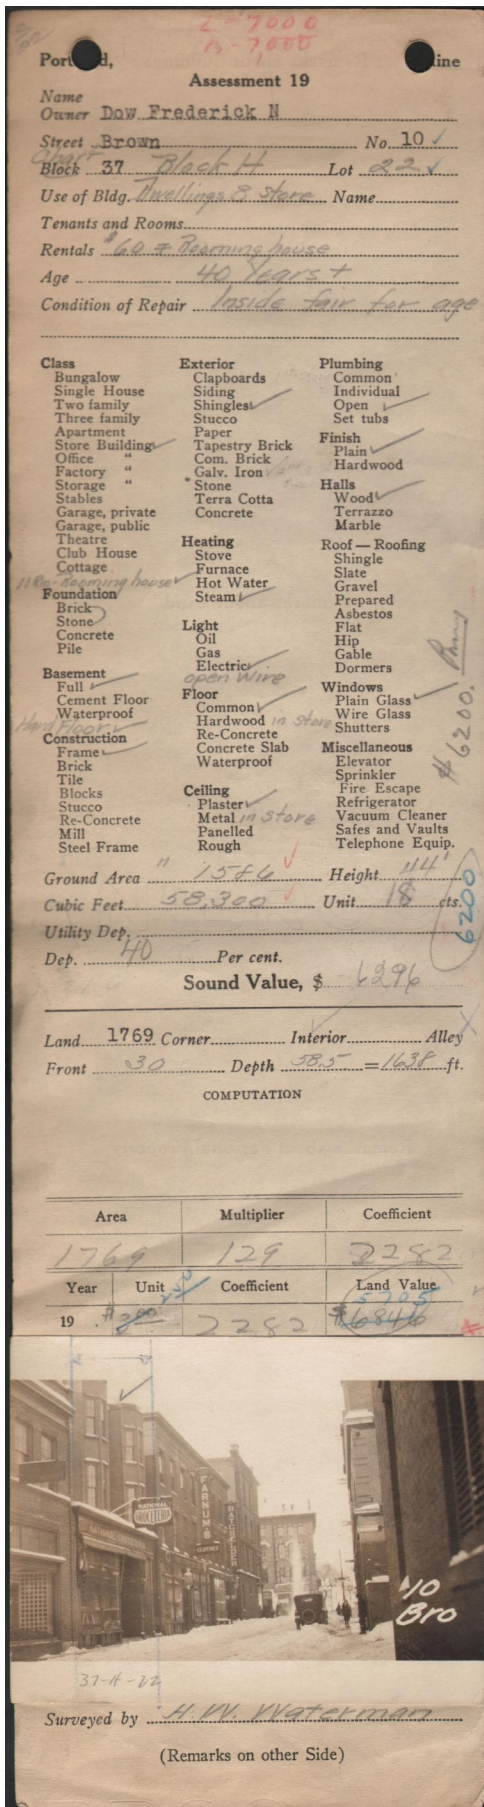 L-7000
B-7000
Port d, ine
Assessment 19
Name
Owner Dow Frederick N
Street Brown No. 10 ✓
Chart
Block 37 Block H Lot 22 ✓
Use of Bldg. Dwellings & Store Name
Tenants and Rooms
Rentals $60 Rooming house
Age 40 Years +
Condition of Repair Inside fair for age
Class
Bungalow
Single House
Two family
Three family
Apartment
Store Building ✓
Office "
Factory "
Storage "
Stables
Garage, private
Garage, public
Theatre
Club House
Cottage
Rooming house ✓
Foundation
Brick
Stone
Concrete
Pile
Basement
Full ✓
Cement Floor
Waterproof
Hard Floor ✓
Construction
Frame ✓
Brick
Tile
Blocks
Stucco
Re-Concrete
Mill
Steel Frame
Exterior
Clapboards
Siding
Shingles ✓
Stucco
Paper
Tapestry Brick
Com. Brick
Galv. Iron
Stone
Terra Cotta
Concrete
Heating
Stove
Furnace
Hot Water
Steam ✓
Light
Oil
Gas
Electric ✓
open wire
Floor
Common ✓
Hardwood in store
Re-Concrete
Concrete Slab
Waterproof
Ceiling
Plaster ✓
Metal in store
Panelled
Rough
Plumbing
Common
Individual
Open ✓
Set tubs
Finish
Plain ✓
Hardwood
Halls
Wood ✓
Terrazzo
Marble
Roof — Roofing
Shingle
Slate
Gravel
Prepared
Asbestos
Flat
Hip
Gable
Dormers
Windows
Plain Glass ✓
Wire Glass
Shutters
Miscellaneous
Elevator
Sprinkler
Fire Escape
Refrigerator
Vacuum Cleaner
Safes and Vaults
Telephone Equip.
$6200.
Ground Area " 1586 ✓ Height 44'
Cubic Feet 58,300 ✓ Unit 18 cts.
6200
Utility Dep.
Dep. 40 Per cent.
Sound Value, $ 6296
Land 1769 Corner Interior ✓ Alley X
Front 30 Depth 58.5 = 1638 ft.
COMPUTATION
Area Multiplier Coefficient
1769 129 2282
Year Unit 250 Coefficient Land Value
5705
19 $3.00 2282 $6846
NATIONAL
GROCETERIA
FARNUM'S
CLOTHES
BATCHELDER
'10
Bro
37-H-22
Surveyed by H. W. Waterman
(Remarks on other Side)